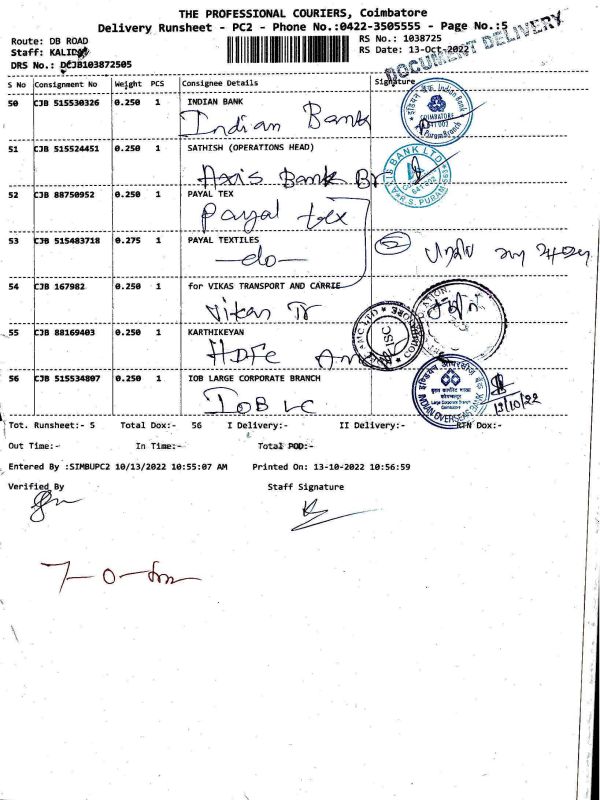 THE PROFESSIONAL COURIERS, Coimbatore
Delivery Runsheet - PC2 - Phone No.:0422-3505555 - Page No.:5
Route: DB ROAD RS No.: 1038725
Staff: KALID RS Date: 13-Oct-2022
DOCUMENT DELIVERY
DRS No.: DCJB103872505
S No Consignment No Weight PCS Consignee Details Signature
50 CJB 515530326 0.250 1 INDIAN BANK
Indian Bank
COIMBATORE
51 CJB 515524451 0.250 1 SATHISH (OPERATIONS HEAD)
Axis Bank Br
52 CJB 88750952 0.250 1 PAYAL TEX
Payal tex
53 CJB 515483718 0.275 1 PAYAL TEXTILES
-do-
54 CJB 167982 0.250 1 for VIKAS TRANSPORT AND CARRIE
Vikas Tr
55 CJB 88169403 0.250 1 KARTHIKEYAN
HDFC AMC
56 CJB 515534807 0.250 1 IOB LARGE CORPORATE BRANCH
IOB LC
INDIAN OVERSEAS BANK
Large Corporate Branch
13/10/22
Tot. Runsheet:- 5 Total Dox:- 56 I Delivery:- II Delivery:- RTN Dox:-
Out Time:- In Time:- Total POD:-
Entered By :SIMBUPC2 10/13/2022 10:55:07 AM Printed On: 13-10-2022 10:56:59
Verified By Staff Signature